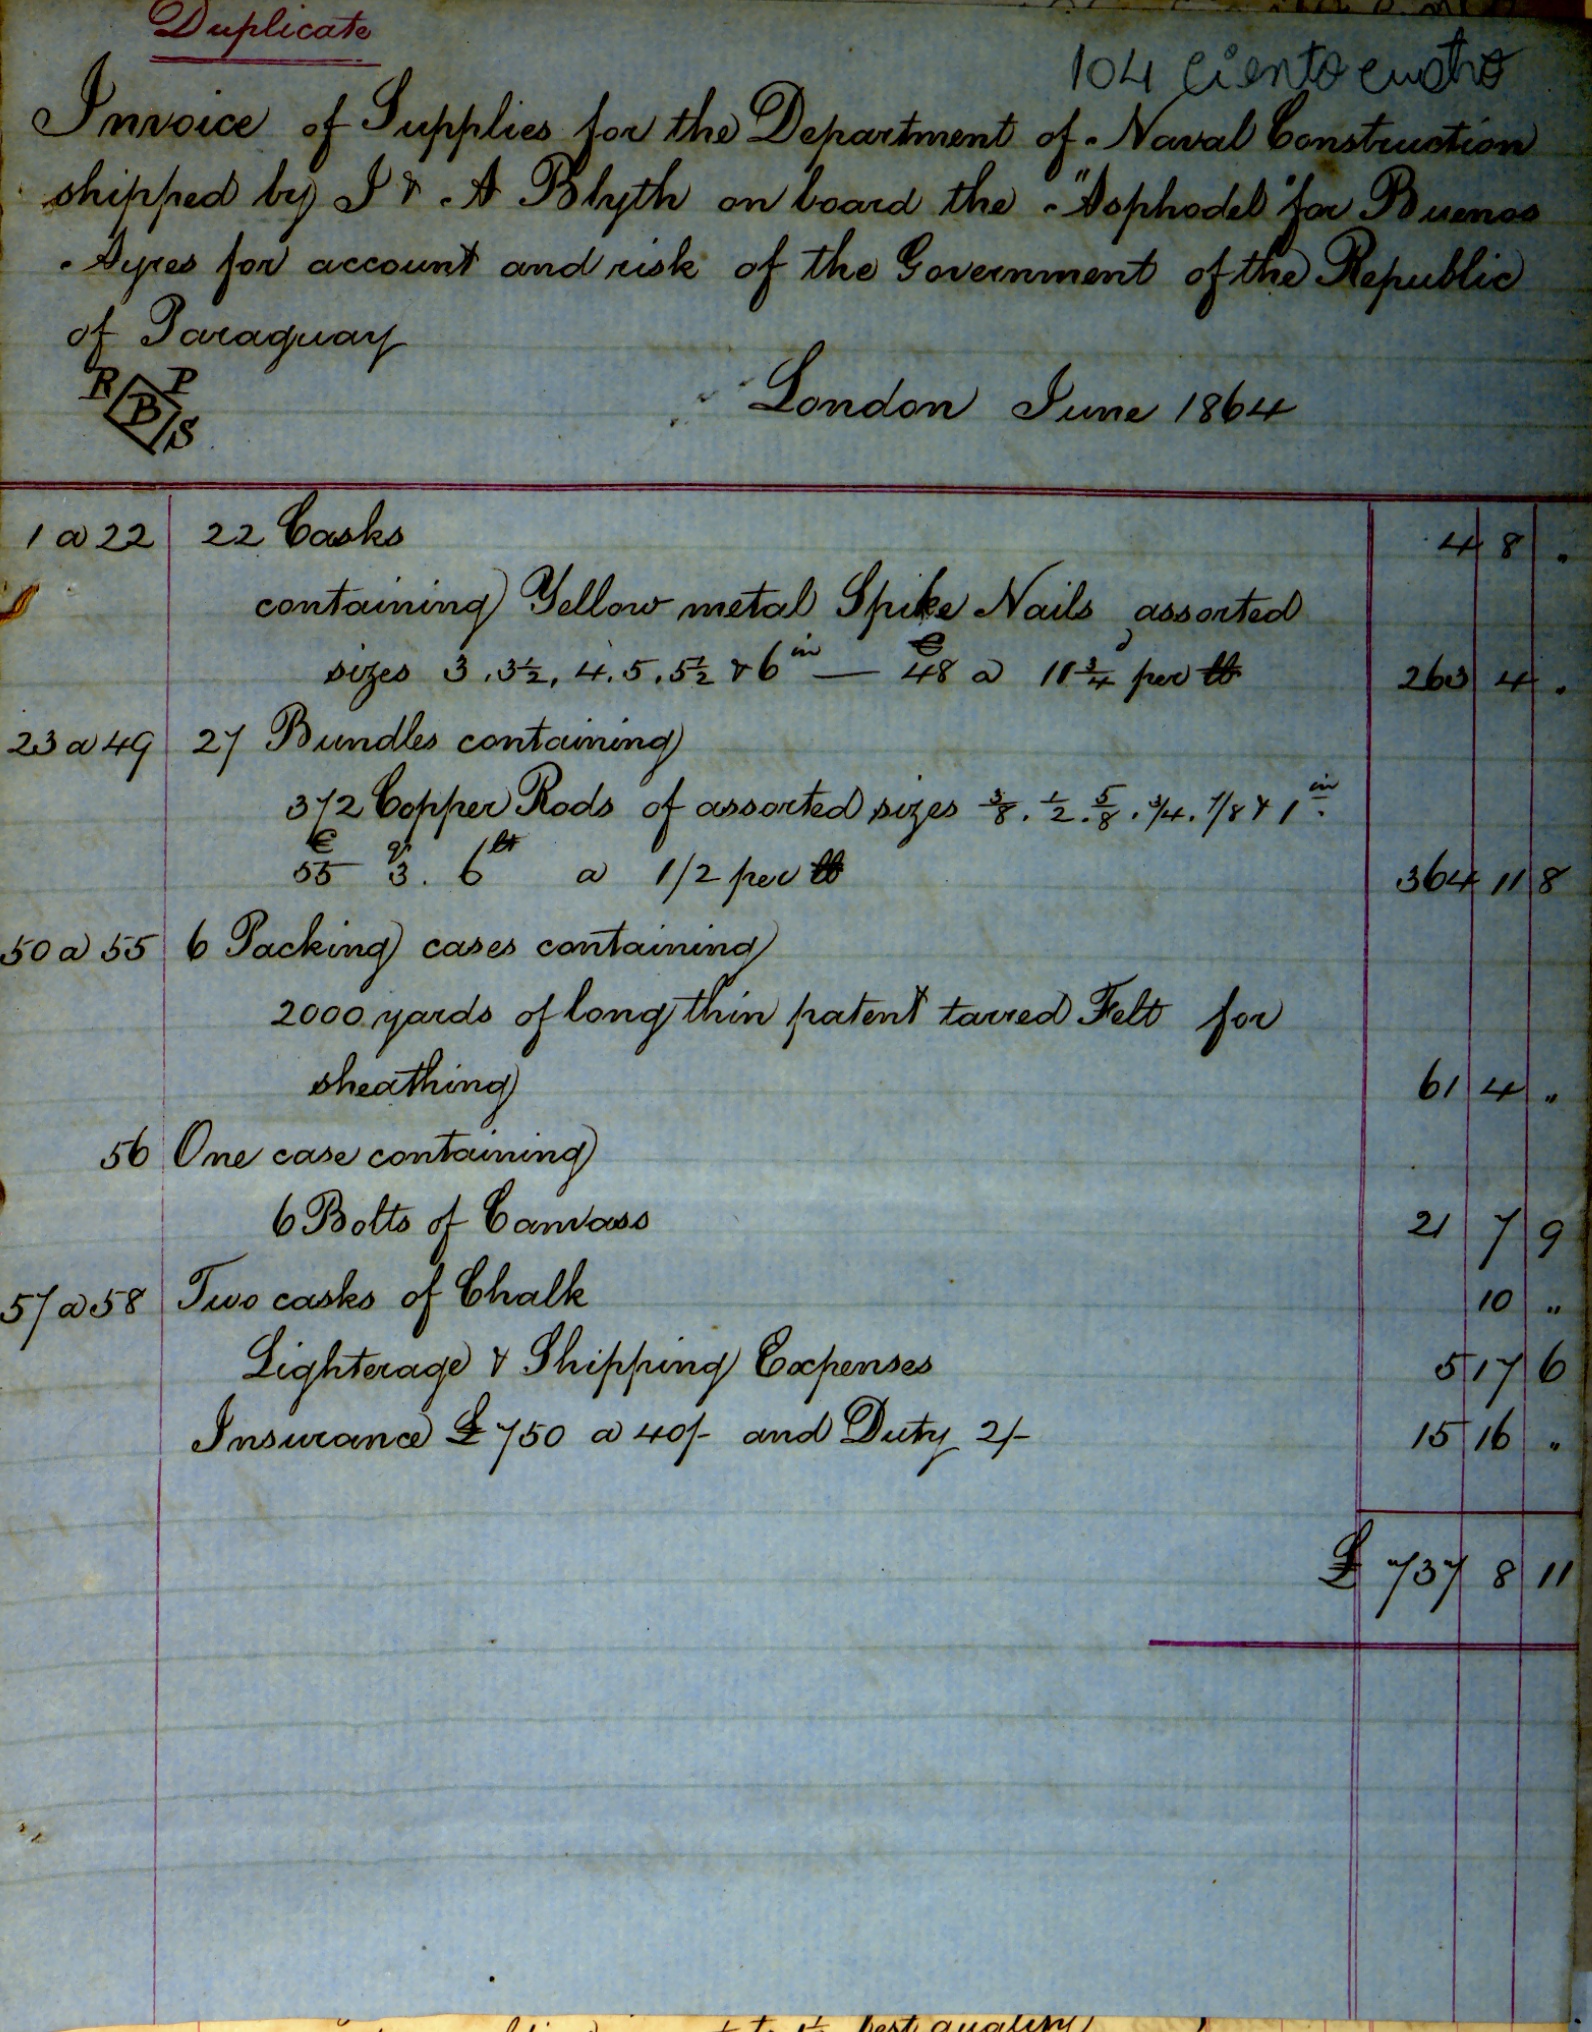 Duplicate
104 ciento cuatro
Invoice of Supplies for the Department of Naval Construction
shipped by J & A Blyth on board the "Asphodel" for Buenos
Ayres for account and risk of the Government of the Republic
of Paraguay
R P
B
S
London June 1864
1 a 22 22 Casks 4 8 .
containing Yellow metal Spike Nails assorted
sizes 3 . 3½ , 4 . 5 . 5½ & 6 in — 48 C a 11¾ d per lb 263 4 .
23 a 49 27 Bundles containing
372 Copper Rods of assorted sizes ⅜ . ½ . ⅝ . ¾ . ⅞ & 1 in .
55 C 3 qr . 6 lb a 1/2 per lb 364 11 8
50 a 55 6 Packing cases containing
2000 yards of long thin patent tarred Felt for
sheathing 61 4 "
56 One case containing
6 Bolts of Canvass 21 7 9
57 a 58 Two casks of Chalk 10 "
Lighterage & Shipping Expenses 5 17 6
Insurance £750 a 40/- and Duty 2/- 15 16 "
£ 737 8 11
best quality